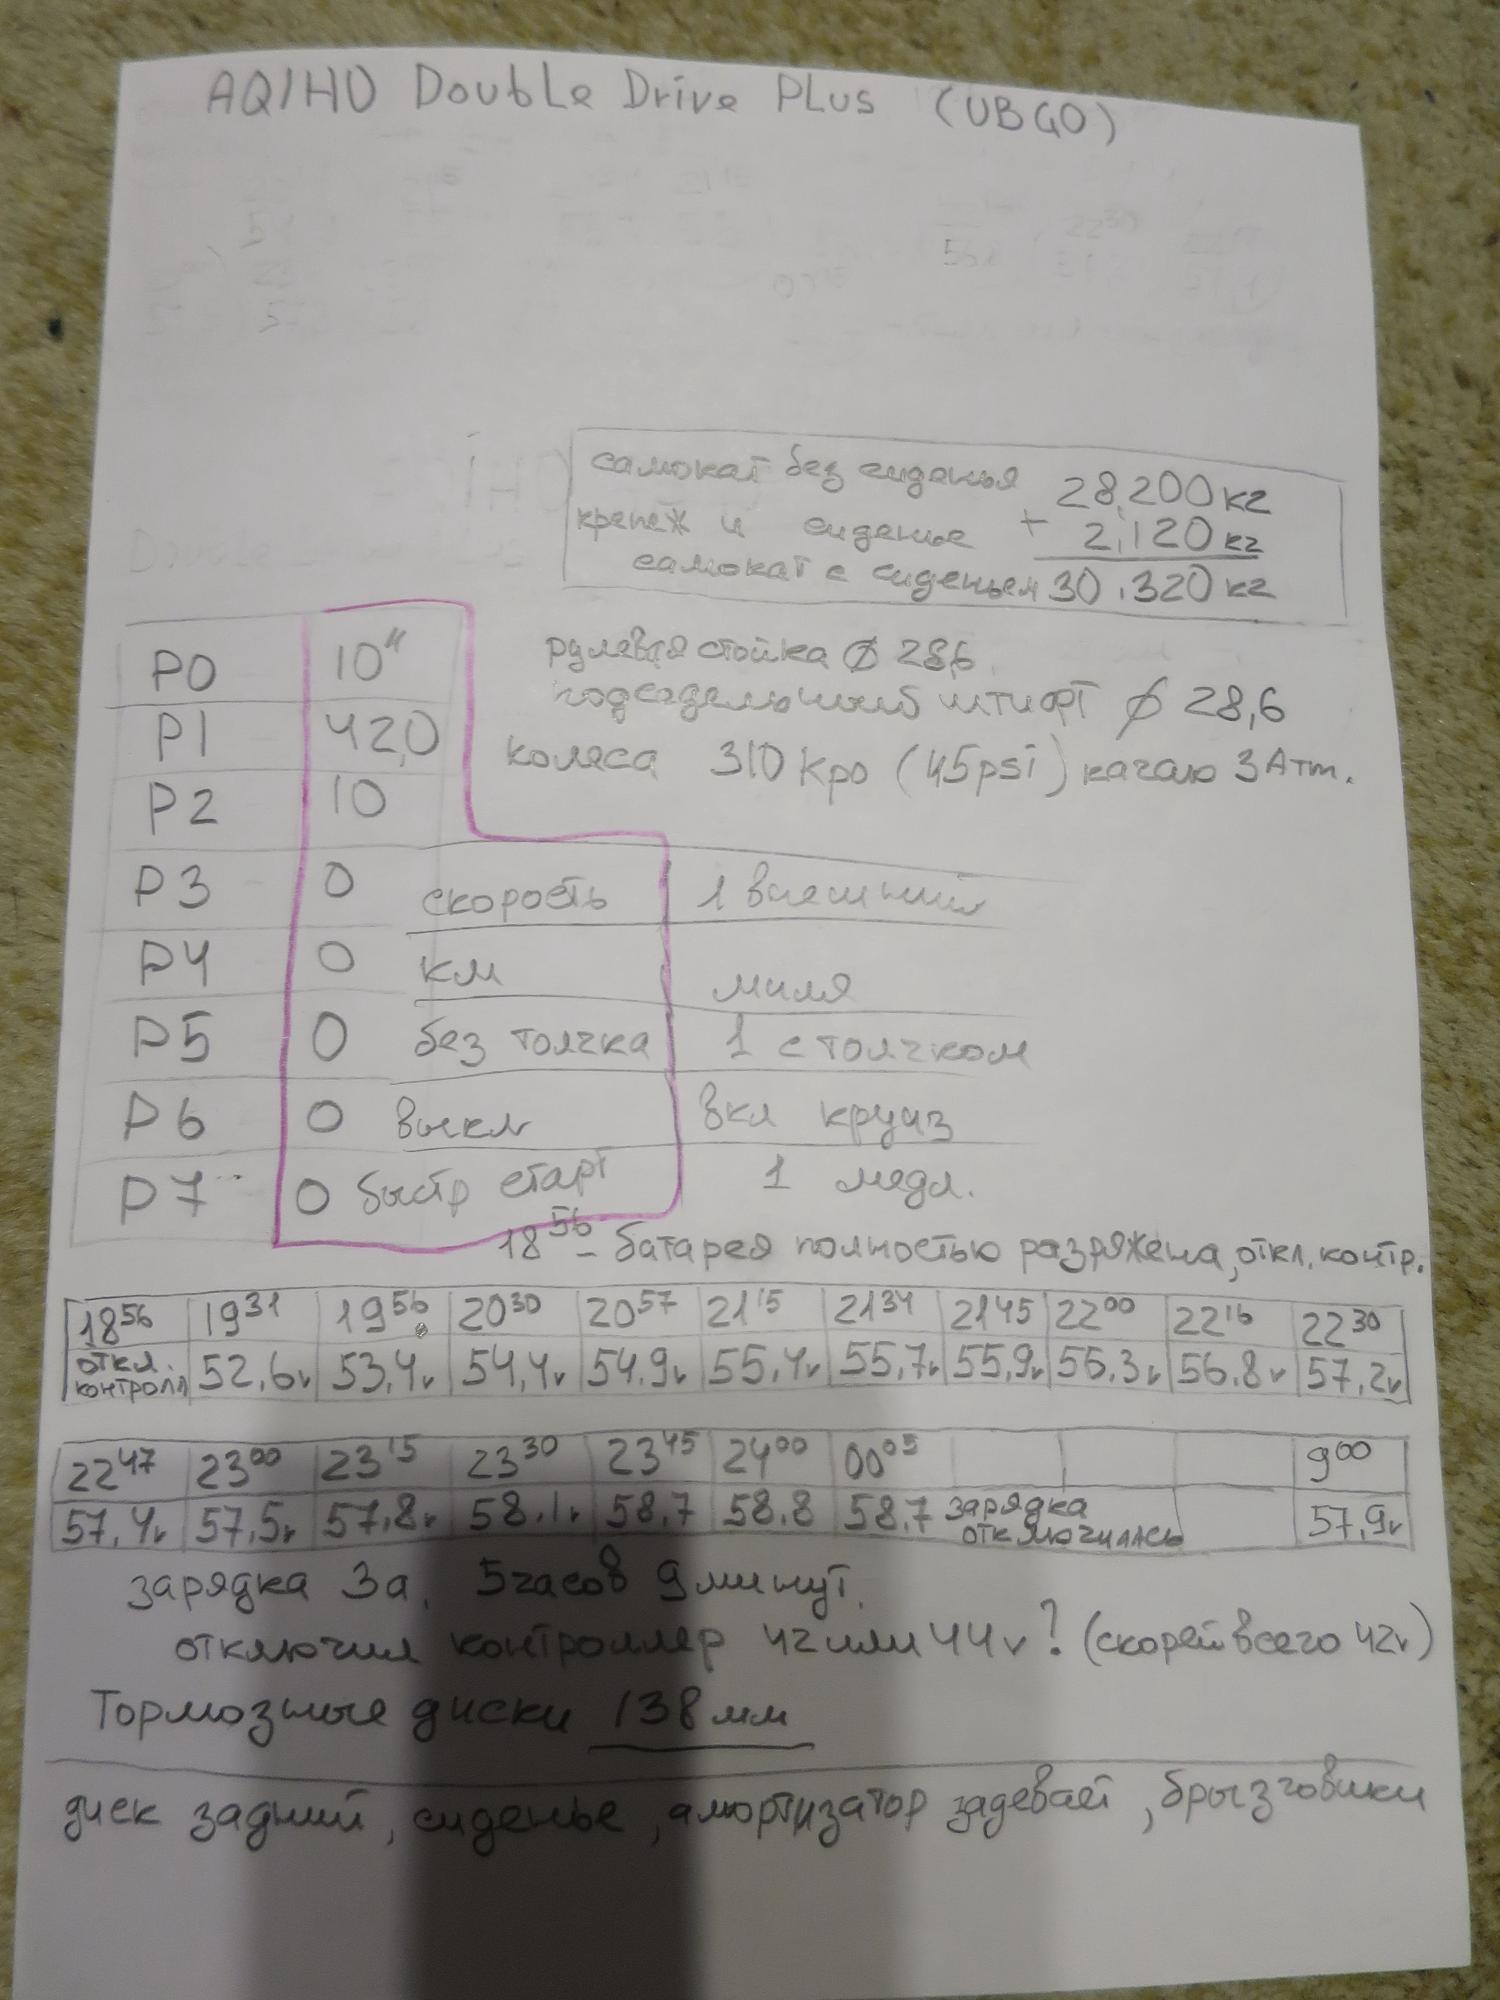 AQIHO Double Drive Plus (UBGO)
самокат без сиденья 28,200кг
крепеж и сиденье + 2,120кг
самокат с сиденьем 30.320кг
рулевая стойка Ø 28,6
подседельный штифт Ø 28,6
коляса 310 Kpa (45psi) качаю 3 Атм.
P0 10"
P1 42,0
P2 10
P3 0 скорость 1 внешний
P4 0 км миля
P5 0 без толчка 1 с толчком
P6 0 выкл вкл круиз
P7 0 быстр старт 1 медл.
18 56 – батарея полностью разряжена, откл. контр.
18 56 19 31 19 56 20 30 20 57 21 15 21 34 21 45 22 00 22 16 22 30
откл. контролл 52,6v 53,4v 54,4v 54.9v 55,4v 55,7v 55,9v 56.3v 56.8v 57,2v
22 47 23 00 23 15 23 30 23 45 24 00 00 05 9 00
57,4v 57,5v 57,8v 58.1v 58.7 58.8 58.7 зарядка отключилась 57,9v
зарядка 3а, 5часов 9минут.
отключил контроллер 42 или 44v? (скорей всего 42v)
Тормозные диски 138мм
диск задний, сиденье, амортизатор задевает, брызговики